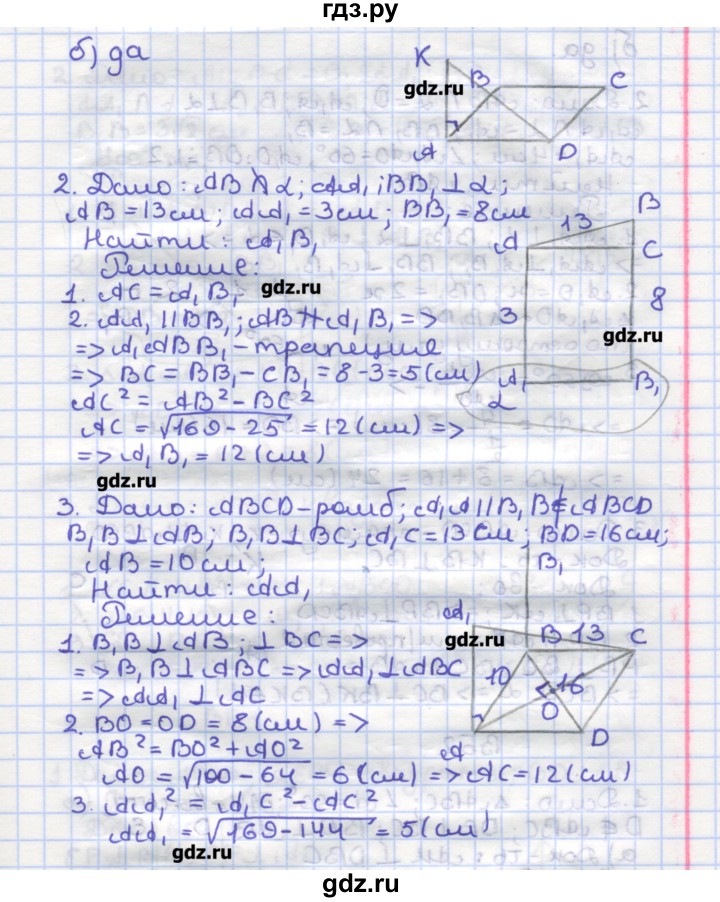 гдз.ру
б) да
K
B
C
A
D
gdz.ru
2. Дано: AB ∦ α; AA₁; BB₁ ⊥ α;
AB = 13 см; AA₁ = 3 см; BB₁ = 8 см
Найти: A₁B₁
Решение:
1. AC = A₁B₁
gdz.ru
2. AA₁ || BB₁; AB ∦ A₁B₁ =>
=> A₁ABB₁ – трапеция
=> BC = BB₁ – CB₁ = 8 – 3 = 5 (см)
AC² = AB² – BC²
AC = √169 – 25 = 12 (см) =>
=> A₁B₁ = 12 (см)
B
13
A
C
3
8
gdz.ru
A₁
B₁
α
gdz.ru
3. Дано: ABCD – ромб; A₁A || B₁B ∉ ABCD
B₁B ⊥ AB; B₁B ⊥ BC; A₁C = 13 см; BD = 16 см;
AB = 10 см;
Найти: AA₁
Решение:
1. B₁B ⊥ AB; ⊥ BC =>
=> B₁B ⊥ ABC => AA₁ ⊥ ABC
=> AA₁ ⊥ AC
2. BO = OD = 8 (см) =>
AB² = BO² + AO²
AO = √100 – 64 = 6 (см) => AC = 12 (см)
3. AA₁² = A₁C² – AC²
AA₁ = √169 – 144 = 5 (см)
B₁
A₁
gdz.ru
B
13
C
10
16
O
A
D
gdz.ru
gdz.ru